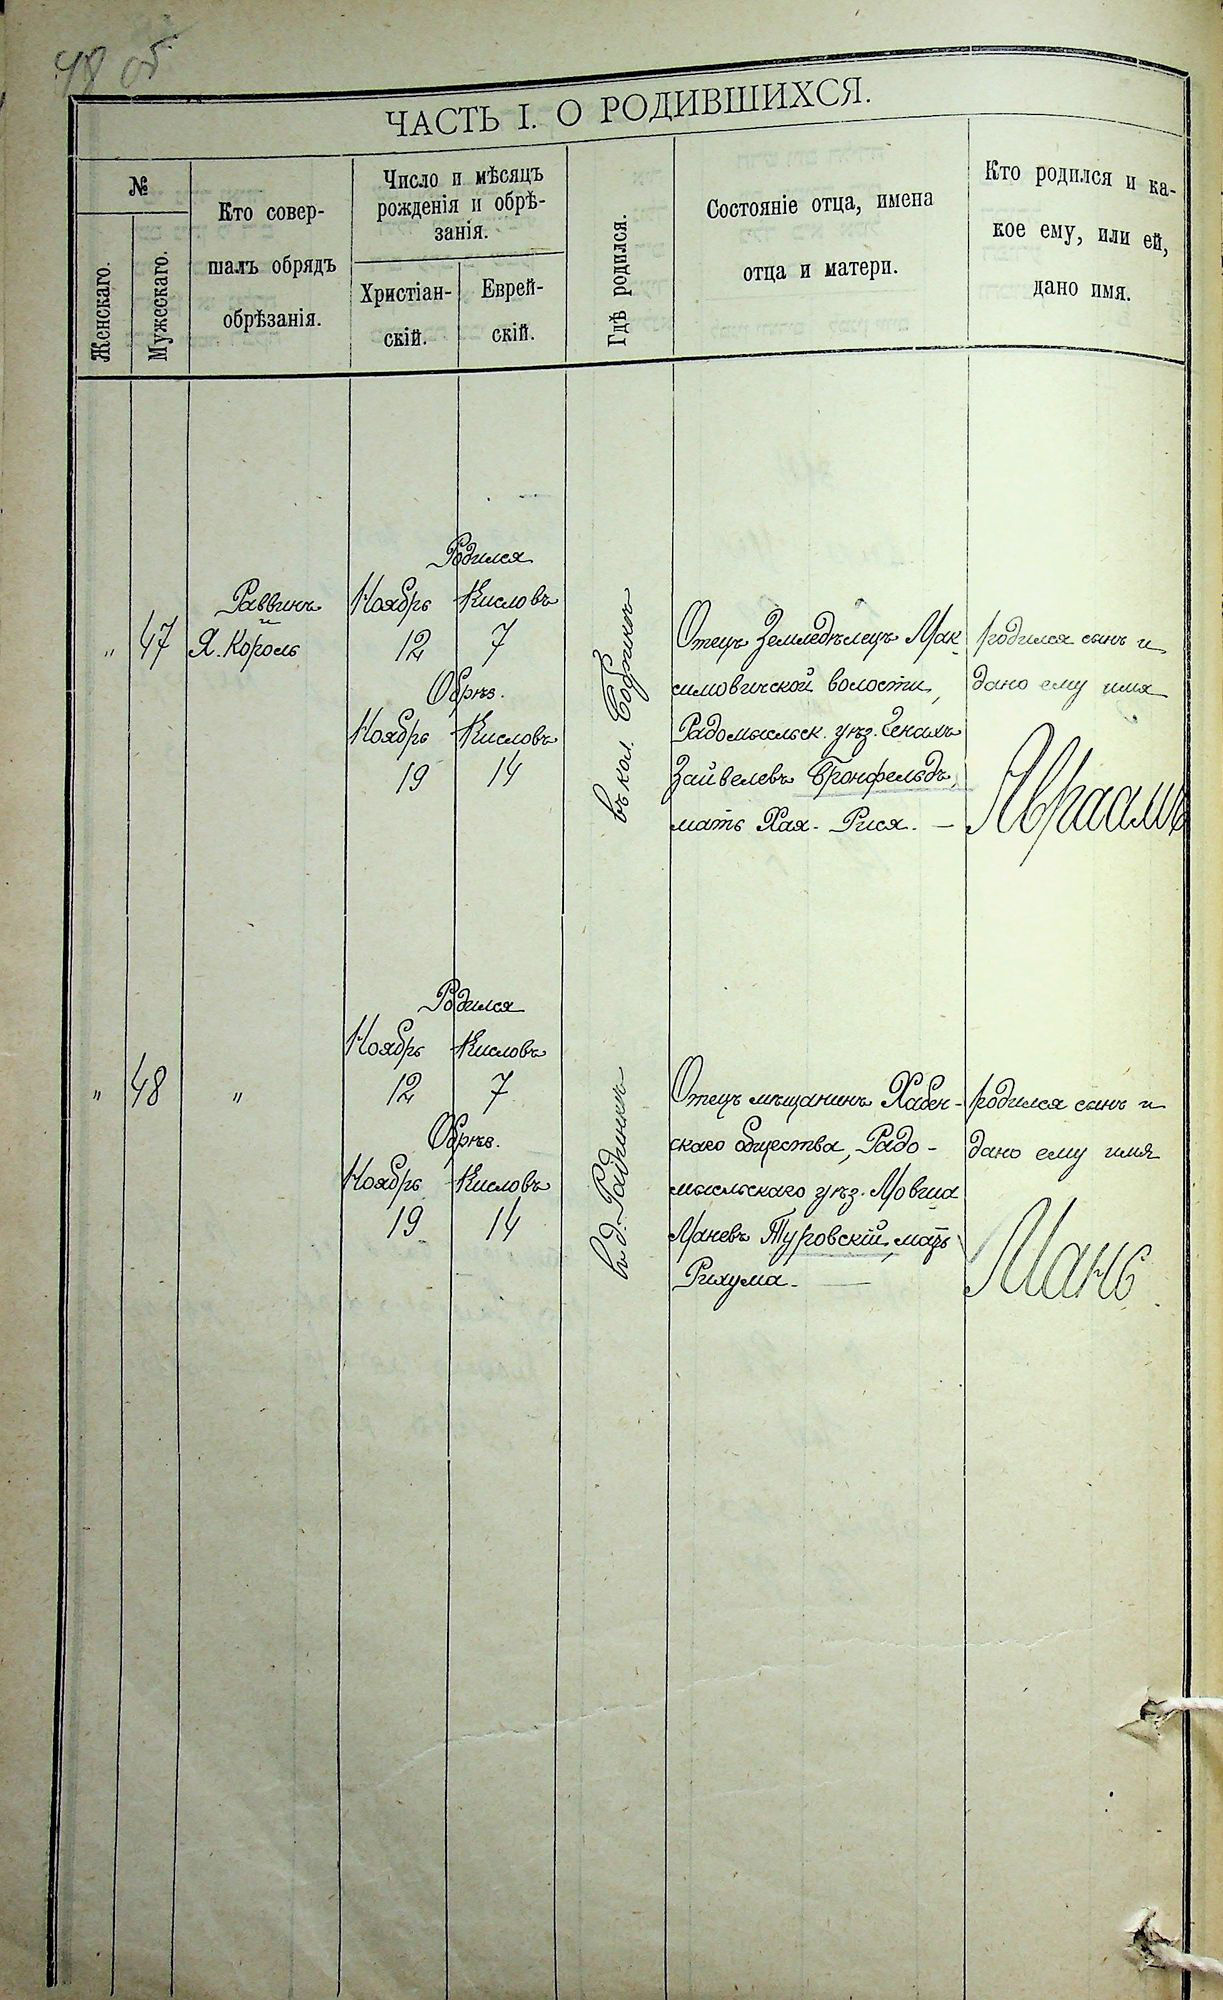 48 об
ЧАСТЬ I. О РОДИВШИХСЯ.
№
Женскаго.
Мужескаго.
Кто совер-
шалъ обрядъ
обрѣзанія.
Число и мѣсяцъ
рожденія и обрѣ-
занія.
Христіан-
скій.
Еврей-
скій.
Гдѣ родился.
Состояніе отца, имена
отца и матери.
Кто родился и ка-
кое ему, или ей,
дано имя.
"
47
Раввинъ
и
Я. Король
Родился
Ноябрь Кисловъ
12 7
Обрѣз.
Ноябрь Кисловъ
19 14
въ кол.
Отецъ Земледѣлецъ Мак-
симовичской волости,
Радомысльск. уѣз.
Зайвелевъ Гронфельдъ,
мать Хая - Рися. —
родился сынъ и
дано ему имя
Авраамъ
"
48
"
Родился
Ноябрь Кисловъ
12 7
Обрѣз.
Ноябрь Кисловъ
19 14
въ д.
Отецъ мѣщанинъ Хабен-
скаго общества, Радо-
мысльскаго уѣз. Мовша
Маневъ Туровскій, мать
Рихума. —
родился сынъ и
дано ему имя
Мань